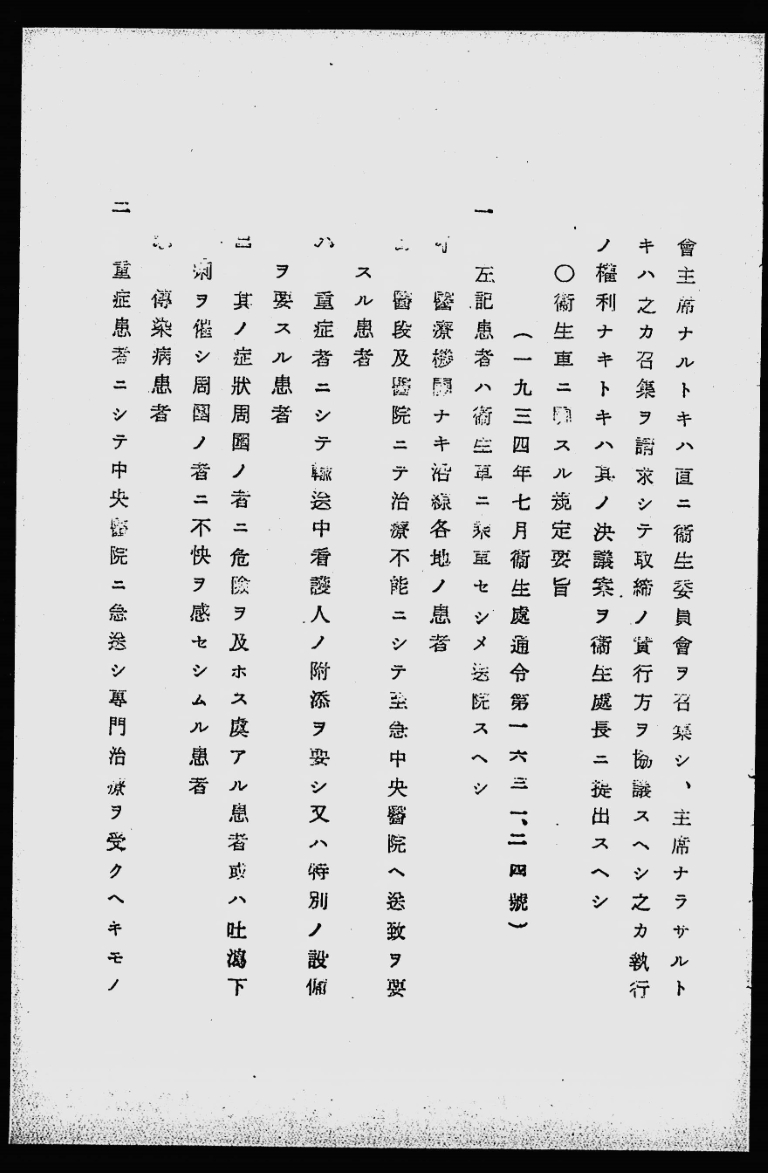 會主席ナルトキハ直ニ衞生委員會ヲ召集シ、主席ナラサルト
キハ之カ召集ヲ請求シテ取締ノ實行方ヲ協議スヘシ之カ執行
ノ權利ナキトキハ其ノ決議案ヲ衞生處長ニ提出スヘシ
〇衞生車ニ關スル規定要旨
(一九三四年七月衞生處通令第一六三一、二四號)
一 左記患者ハ衞生車ニ乘車セシメ送院スヘシ
イ 醫療機關ナキ沿線各地ノ患者
ロ 醫段及醫院ニテ治療不能ニシテ至急中央醫院ヘ送致ヲ要
スル患者
ハ 重症者ニシテ輸送中看護人ノ附添ヲ要シ又ハ特別ノ設備
ヲ要スル患者
ニ 其ノ症狀周圍ノ者ニ危險ヲ及ホス虞アル患者或ハ吐瀉下
痢ヲ催シ周圍ノ者ニ不快ヲ感セシムル患者
傳染病患者
二 重症患者ニシテ中央醫院ニ急送シ專門治療ヲ受クヘキモノ